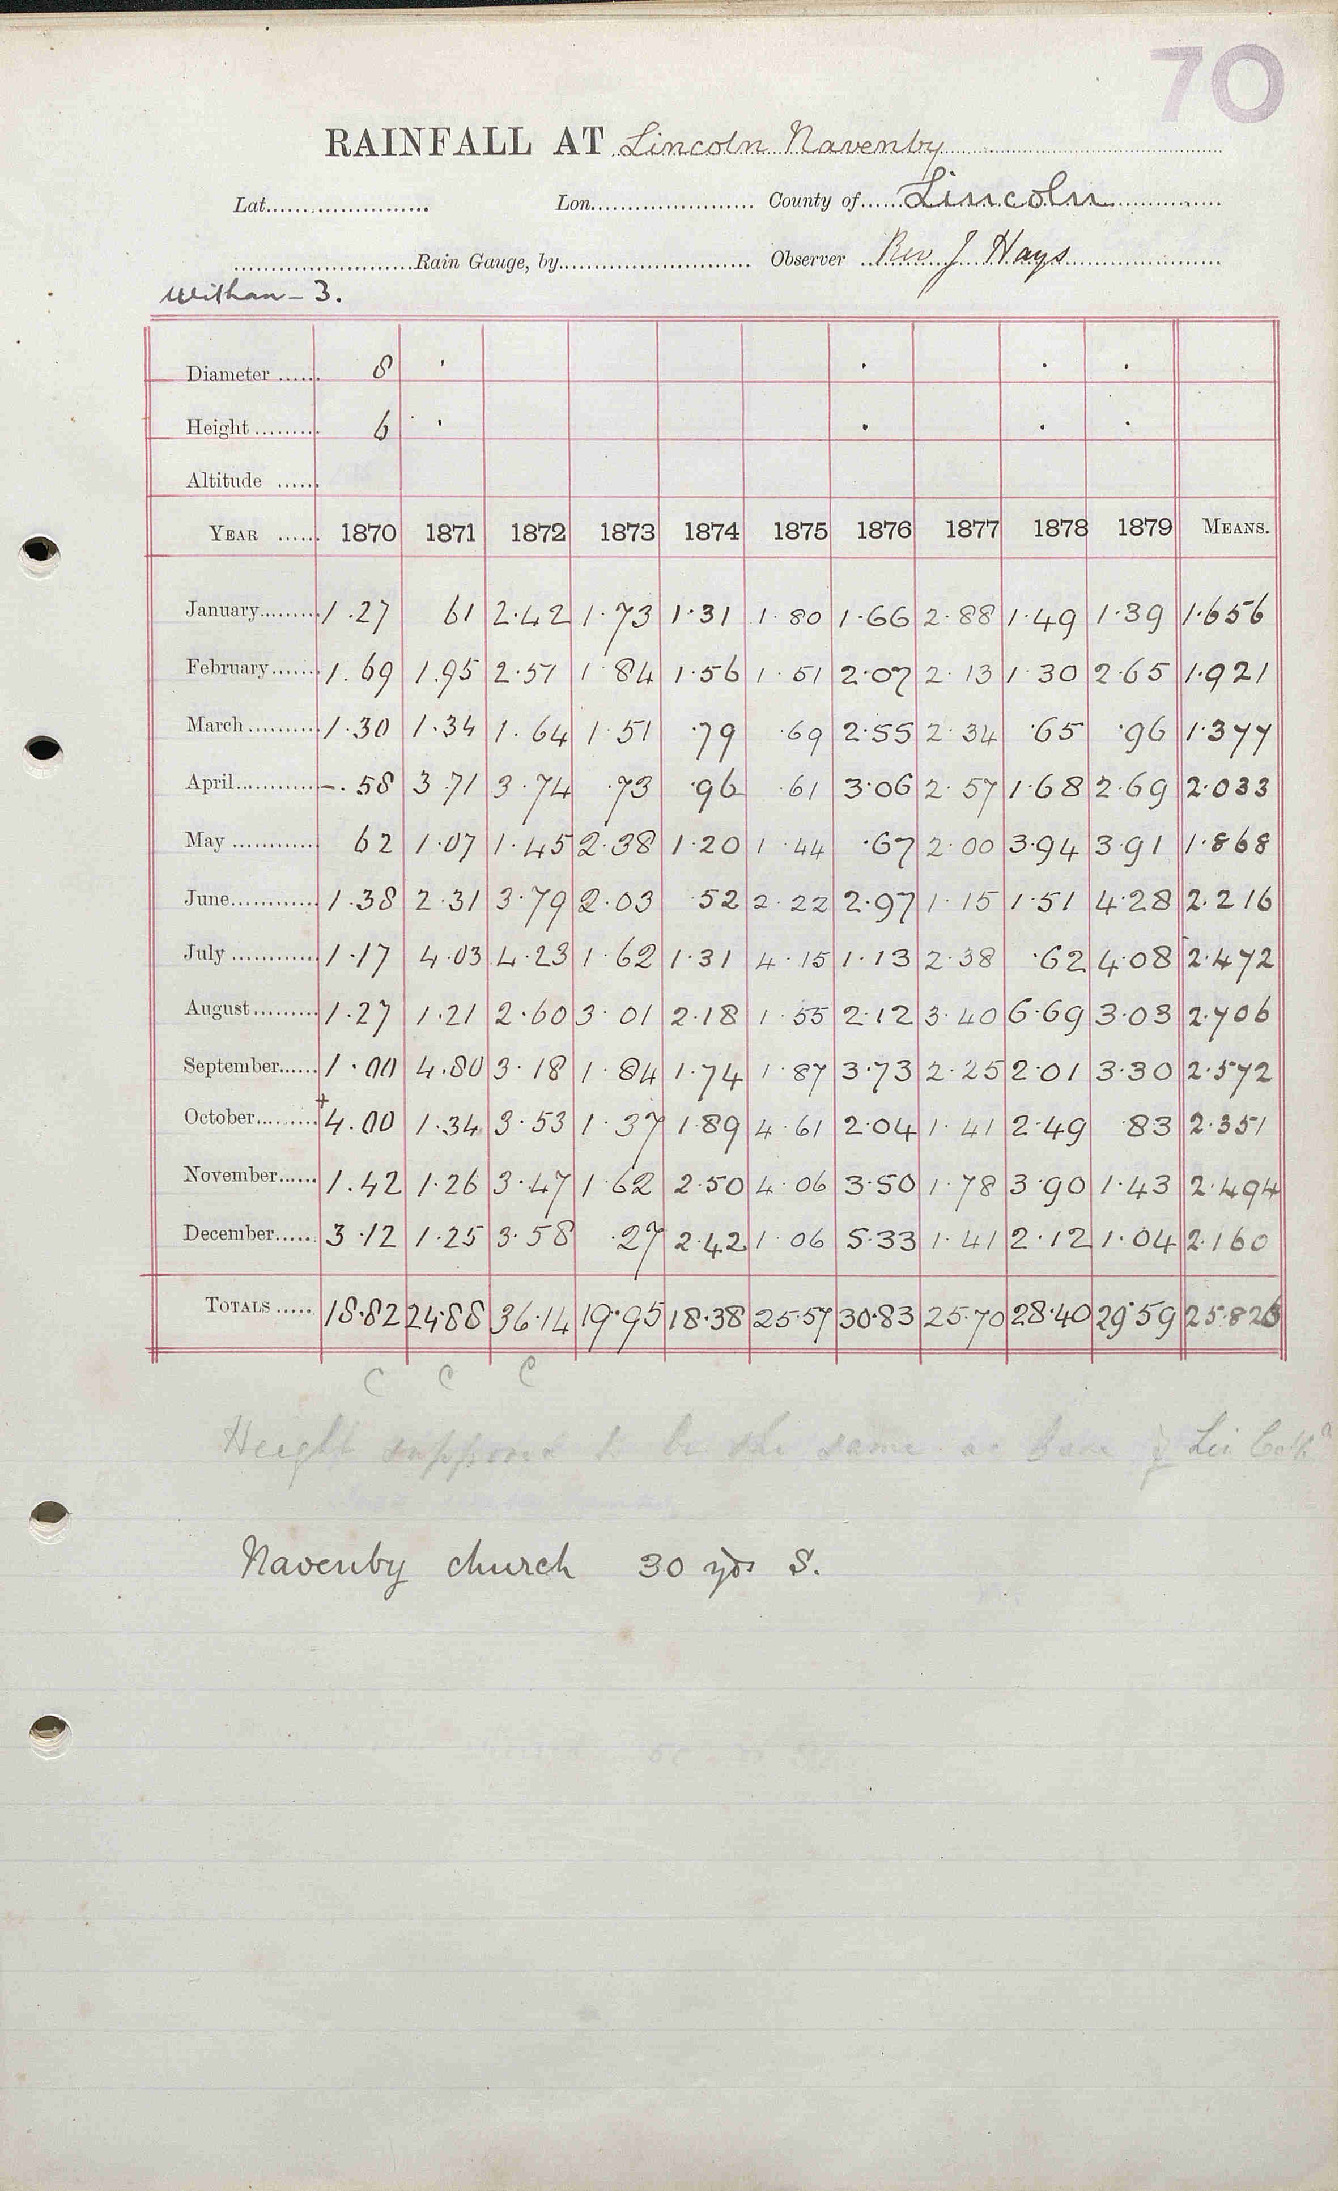 70
RAINFALL AT Lincoln Navenby
Lat. Lon. County of Lincoln
Rain Gauge, by Observer Rev J Hays
3.
Diameter 8
Height 6
Altitude
YEAR 1870 1871 1872 1873 1874 1875 1876 1877 1878 1879 MEANS.
January 1.27 61 2.42 1.73 1.31 1.80 1.66 2.88 1.49 1.39 1.656
February 1.69 1.95 2.51 1 84 1.56 1.51 2.07 2.13 1 30 2.65 1.921
March 1.30 1.34 1.64 1.51 .79 .69 2.55 2.34 .65 .96 1.377
April -.58 3.71 3.74 .73 .96 .61 3.06 2.57 1.68 2.69 2.033
May 62 1.07 1.45 2.38 1.20 1.44 .67 2.00 3.94 3.91 1.868
June 1.38 2.31 3.79 2.03 .52 2.22 2.97 1.15 1.51 4.28 2.216
July 1.17 4.03 4.23 1.62 1.31 4.15 1.13 2.38 .62 4.08 2.472
August 1.27 1.21 2.60 3.01 2.18 1.55 2.12 3.40 6.69 3.03 2.706
September 1.00 4.80 3.18 1.84 1.74 1.87 3.73 2.25 2.01 3.30 2.572
October +4.00 1.34 3.53 1.37 1.89 4.61 2.04 1.41 2.49 83 2.351
November 1.42 1.26 3.47 1.62 2.50 4.06 3.50 1.78 3.90 1.43 2.494
December 3.12 1.25 3.58 .27 2.42 1.06 5.33 1.41 2.12 1.04 2.160
TOTALS 18.82 24.88 36.14 19.95 18.38 25.57 30.83 25.70 28.40 29.59 25.826
C C C
Height supposed to be the same as
Navenby church 30 yds S.